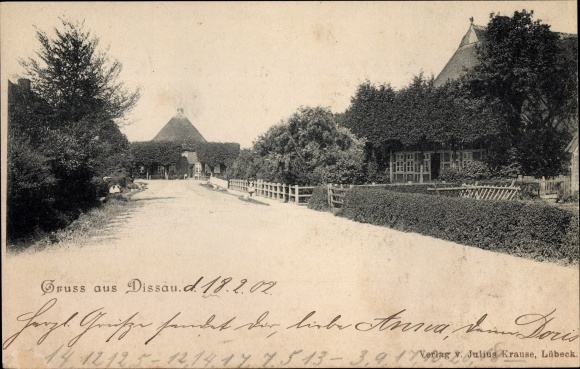 Gruss aus Dissau. d. 13.2.02
Herzl. Grüße sendet der, liebe Anna, deine Doris
14,12,12,5 - 12,14,17,7,5,13 - 3,9,17
Verlag v. Julius Krause, Lübeck.